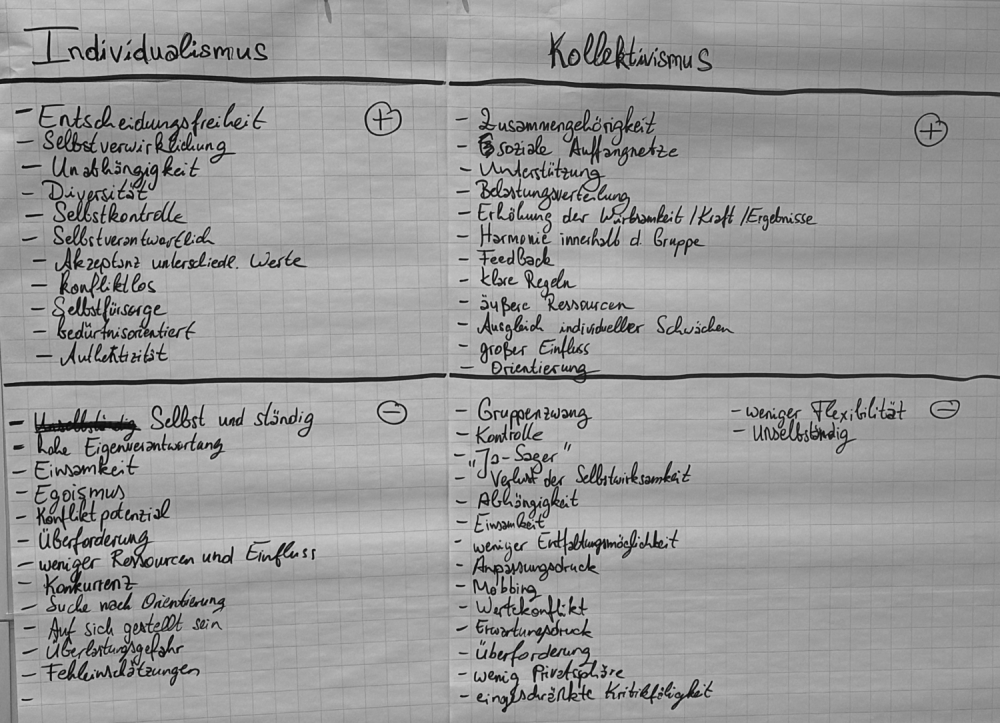 Individualismus
- Entscheidungsfreiheit
- Selbstverwirklichung
- Unabhängigkeit
- Diversität
- Selbstkontrolle
- Selbstverantwortlich
- Akzeptanz unterschiedl. Werte
- konfliktlos
- Selbstfürsorge
- bedürfnisorientiert
- Authentizität
+
Kollektivismus
- Zusammengehörigkeit
- soziale Auffangnetze
- Unterstützung
- Belastungsverteilung
- Erhöhung der Wirksamkeit / Kraft / Ergebnisse
- Harmonie innerhalb d. Gruppe
- Feedback
- klare Regeln
- äußere Ressourcen
- Ausgleich individueller Schwächen
- großer Einfluss
- Orientierung
+
- Selbst und ständig
- hohe Eigenverantwortung
- Einsamkeit
- Egoismus
- Konfliktpotenzial
- Überforderung
- weniger Ressourcen und Einfluss
- Konkurrenz
- Suche nach Orientierung
- Auf sich gestellt sein
- Überlastungsgefahr
- Fehleinschätzungen
-
-
- Gruppenzwang
- Kontrolle
- "Ja-Sager"
- Verlust der Selbstwirksamkeit
- Abhängigkeit
- Einsamkeit
- weniger Entfaltungsmöglichkeit
- Anpassungsdruck
- Mobbing
- Wertekonflikt
- Erwartungsdruck
- Überforderung
- wenig Privatsphäre
- eingeschränkte Kritikfähigkeit
- weniger Flexibilität
- Unselbständig
-